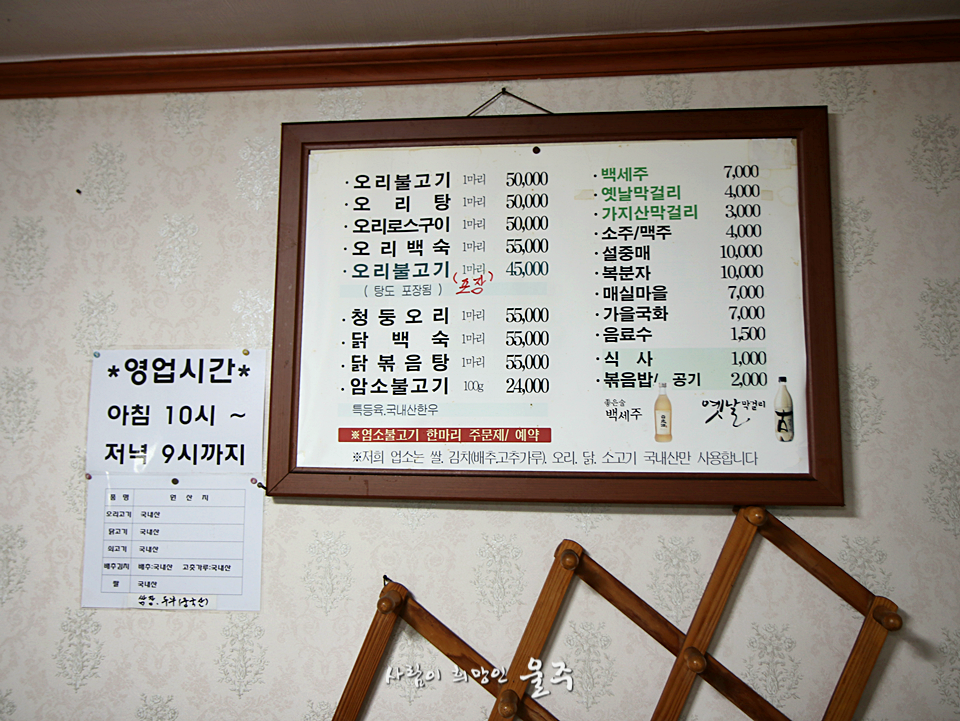 ·오리불고기 1마리 50,000
·오리탕 1마리 50,000
·오리로스구이 1마리 50,000
·오리백숙 1마리 55,000
·오리불고기 1마리 45,000
( 탕도 포장됨 ) (포장)
·청둥오리 1마리 55,000
·닭백숙 1마리 55,000
·닭볶음탕 1마리 55,000
·암소불고기 100g 24,000
특등육,국내산한우
※염소불고기 한마리 주문제/ 예약
·백세주 7,000
·옛날막걸리 4,000
·가지산막걸리 3,000
·소주/맥주 4,000
·설중매 10,000
·복분자 10,000
·매실마을 7,000
·가을국화 7,000
·음료수 1,500
·식 사 1,000
·볶음밥/ 공기 2,000
좋은술
백세주
옛날 막걸리
※저희 업소는 쌀, 김치(배추,고추가루), 오리, 닭, 소고기 국내산만 사용합니다
*영업시간*
아침 10시 ~
저녁 9시까지
품 명 원 산 지
오리고기 국내산
닭고기 국내산
쇠고기 국내산
배추김치 배추:국내산 고춧가루:국내산
쌀 국내산
사람이 희망인 울주